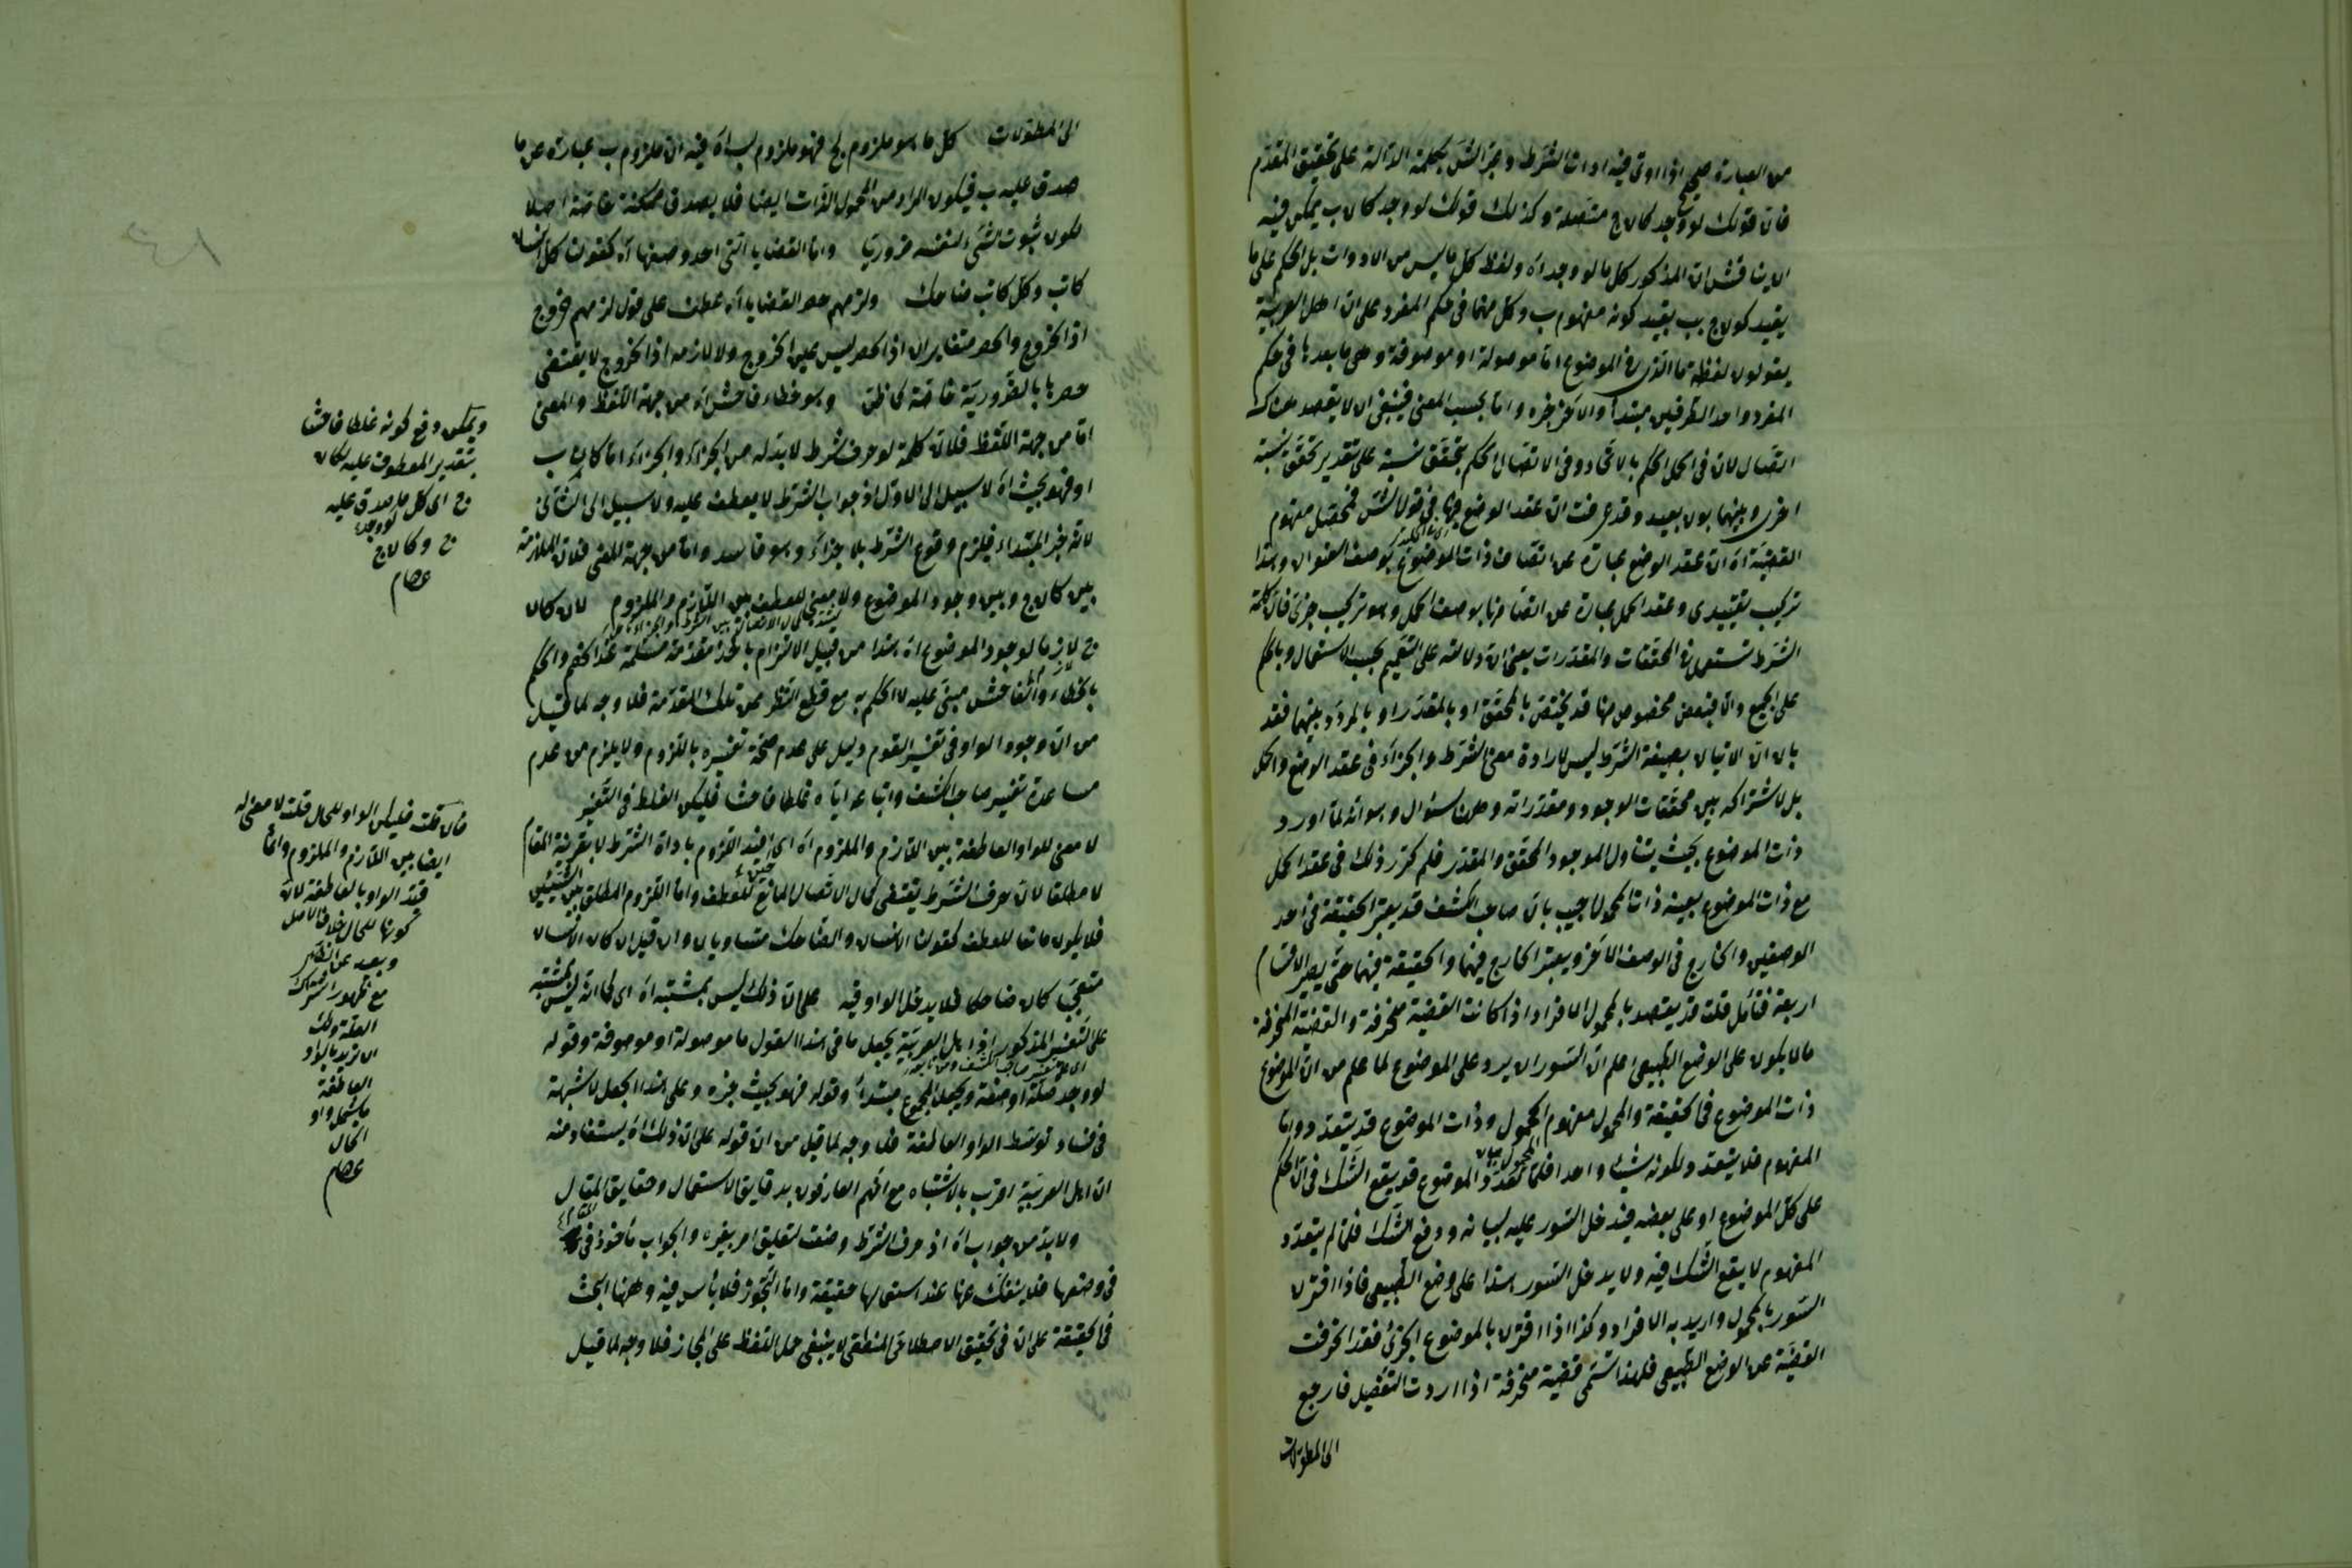 من العبارة صحيح اذا اوتى فيه ادات الشرط وخبر الشئ بكلمة الدالة على تحقيق المقدم
فان قولك لو وجد كان ج متصلة وكذلك قولك لو وجد كان ب يمكن فيه
ان المذكور كل ما لو وجد اه ولفظ كل ما ليس من الادوات بل الحكم على ما
يقيد كون ج بب يقيد كونه مفهوم ب وكل منها فى حكم المفرد على ان اهل العربية
يقولون لفظة ما الذى فى الموضوع اما موصولة او موصوفة وهى ما بعدها فى حكم
المفرد واحد الطرفين مبتدأ والاخر خبره واما بحسب المعنى فينبغى ان لا يقصد هناك
اتصال لان فى الحمل الحكم بالاتحاد وفى الاتصال الحكم بتحقق نسبة على تقدير تحقق نسبة
اخرى وبينهما بون بعيد وقد عرفت ان عقد الوضع فى قول الش فمحصل مفهوم
القضية اه ان عقد الوضع عبارة عن اتصاف ذات الموضوع بوصف العنوان وهذا
تركيب تقييدى وعقد الحمل عبارة عن اتصافها بوصف الحمل وهو تركيب خبرى فان كلمة
الشرط تستعمل فى المحققات والمقدرات يعنى ان دلالته على التعميم بحسب الاستعمال وبالحكم
على الجميع والا فبعض مخصوص منها قد يختص بالمحقق او بالمقدر او بالمردد بينهما فقد
بان ان الاتيان بصيغة الشرط ليس لارادة معنى الشرط والجزاء فى عقد الوضع والحمل
بل لاشتراكه بين محققات الوجود ومقدراته وههنا سؤال وهو انه لما اورد
ذات الموضوع بحيث يتناول الموجود المحقق والمقدر فلم كرر ذلك فى عقد الحمل
مع ذات الموضوع بعينه ذات المحمول اجيب بان صاحب الكشف قد يعتبر الحقيقة فى احد
الوصفين والخارج فى الوصف الاخر ويعتبر الخارج فيهما والحقيقة فيهما حتى يصير الاقسام
اربعة فتأمل قلت قد يقصد بالمحمول الافراد اذا كانت القضية منحرفة والقضية المنحرفة
ما لا يكون على الوضع الطبيعى اعلم ان السور ان يرد على الموضوع لما علم من ان الموضوع
ذات الموضوع فى الحقيقة والمحمول مفهوم المحمول وذات الموضوع قد يتعدد واما
المفهوم فلا يتعدد لكونه شيئا واحدا فلما تعدد الموضوع قد يقع الشك فى ان الحكم
على كل الموضوع او على بعضه فيدخل السور عليه لبيانه ودفع الشك فلما لم يتعدد
المفهوم لا يقع الشك فيه ولا يدخل السور هذا على وضع الطبيعى فاذا اقترن
السور بالمحمول واريد به الافراد وكذا اذا اقترن بالموضوع الجزئى فقد انحرفت
القضية عن الوضع الطبيعى فلهذا تسمى قضية منحرفة اذا اردت التفصيل فارجع
الى المطولات
الى المطولات كل ما هو ملزوم لج فهو ملزوم لب اه فيه ان ملزوم ب عبارة عن ما
صدق عليه ب فيكون المراد من المحمول الذات ايضا فلا يصدق ممكنة خاصة اصلا
لكون ثبوت الشئ لنفسه ضروريا واما القضايا التى احد وصفيها اه كقولنا كل انسان
كاتب وكل كاتب ضاحك ولزمهم حصر القضايا اه عطف على قول لزمهم خروج
اذ الخروج والحصر متغايران اذ الحصر ليس عين الخروج ولا لازمه اذ الخروج لا يقتضى
حصرها بالضرورية خاصة كما ظن وهو خطاء فاحش اه من جهة اللفظ والمعنى
اما من جهة اللفظ فلان كلمة لو حرف شرط لا بد له من الجزاء والجزاء اما كان ب
او فهو بحيث اه لا سبيل الى الاول اذ جواب الشرط لا يعطف عليه ولا سبيل الى الثانى
لانه خبر المبتداء فيلزم وقوع الشرط بلا جزاء وهو فاسد واما من جهة المعنى فلان الملازمة
بين كان ج وبين وجود الموضوع ولا معنى للعطف بين اللازم والملزوم لان كان
ج لازما لوجود الموضوع اه هذا من قبيل الالزام باخذ مقدمة مسلمة عند الخصم والحكم
بالخطاء الفاحش مبنى عليه لا الحكم به مع قطع النظر عن تلك المقدمة فلا وجه لما قيل
من ان وجود الواو فى تفسير القوم دليل على عدم صحة تفسيره باللزوم ولا يلزم من عدم
مساعدة تفسير صاحب الكشف واتباعه اياه غلطا فاحشا فليكن الغلط فى التفسير
لا معنى للواو العاطفة بين اللازم والملزوم اه اى افيد اللزوم باداة الشرط لا بقرينة المقام
لا مطلقا لان حرف الشرط يقتضى كمال الاتصال المانع للعطف واما اللزوم المطلق بين الشيئين
فلا يكون مانعا للعطف كقولنا الانسان والضاحك متساويان وان قيل ان كان الانسان
متعجبا كان ضاحكا فلا يدخل الواو فيه على ان ذلك ليس بمشتبه اه اى كما انه ليس بمشتبه
على التفسير المذكور اذ اهل العربية يجعل ما فى هذا القول ما موصولة او موصوفة وقوله
لو وجد صلة او صفة ويجعل المجموع مبتدأ وقوله فهو بحيث خبره وعلى هذا الجعل لا شبهة
فى فساد توسط الواو العاطفة فلا وجه لما قيل من ان قوله على ان ذلك اه يستفاد منه
ان اهل العربية اقرب بالاشتباه مع انهم العارفون بدقايق الاستعمال وحقايق المقال
ولا بد من جواب اه اذ حرف الشرط وضعت لتعليق امر بغيره والجواب مأخوذ فى
فى وضعها فلا ينفك عنها عند استعمالها حقيقة واما التجوز فلا بأس فيه وههنا البحث
فى الحقيقة على ان فى تحقيق الاصطلاحى المنطقى لا ينبغى حمل اللفظ على المجاز فلا وجه لما قيل
ويمكن دفع كونه غلطا فاحشا
بتقدير المعطوف عليه لكان
ج اى كل ما صدق عليه
ج لو وجد وكان ج
عصام
فان قلت فليكن الواو للحال قلت لا معنى له
ايضا بين اللازم والملزوم وانما
قيد الواو بالعاطفة لان
كونها للحال خلاف الاصل
وبعيد عن النظر
مع ظهور اشتراك
العلة ولك
ان تريد بالواو
العاطفة
ما يشمل واو
الحال
عصام